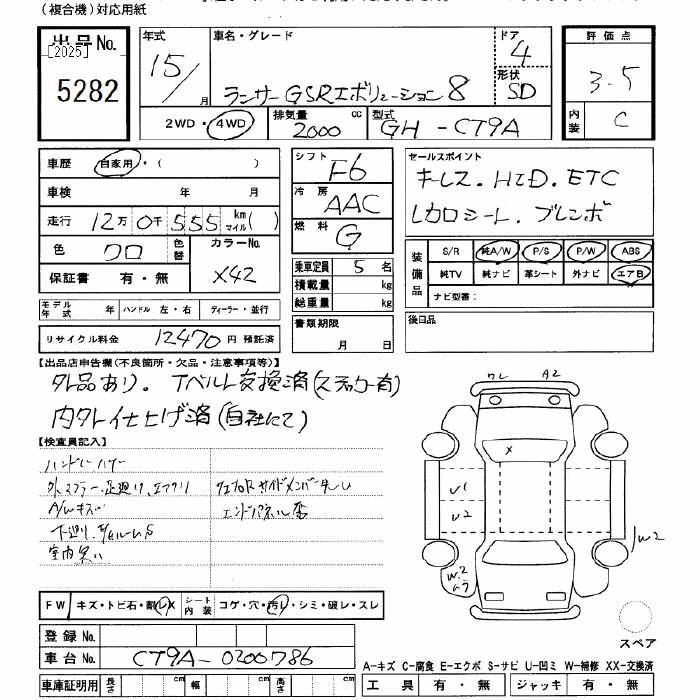 (複合機)対応用紙
出品No. [2025]
5282
年式 15/ 月
車名・グレード
ランサー GSRエボリューション8
ドア 4
形状 SD
評価点
3.5
内装 C
2WD・4WD
排気量 2000 cc
型式 GH-CT9A
車歴 自家用・( )
車検 年 月
走行 12万0千555 km マイル( )
色 クロ 色替
カラーNo. X42
保証書 有・無
シフト F6
冷房 AAC
燃料 G
乗車定員 5 名
積載量 kg
総重量 kg
セールスポイント
キーレス.HID.ETC
レカロシート.ブレンボ
装備品
S/R 純A/W P/S P/W ABS
純TV 純ナビ 革シート 外ナビ エアB
ナビ型番:
モデル年式 年 ハンドル 左・右 ディーラー・並行
書類期限 月 日
後日品
リサイクル料金 12470 円 預託済
【出品店申告欄(不良箇所・欠品・注意事項等)】
外品あり。Tベルト交換済(ステッカー有)
内外仕上げ済(自社にて)
【検査員記入】
A/Wキズ
エンドパネル
室内
ワレ A2
X
W1
W2
W2
W.2
FW キズ・トビ石・割レ・X
シート内装 コゲ・穴・汚レ・シミ・破レ・スレ
スペア
登録No.
車台No. CT9A-0200786
A-キズ C-腐食 E-エクボ S-サビ U-凹ミ W-補修 XX-交換済
車庫証明用 長さ cm 幅 cm 高さ cm
工具 有・無 ジャッキ 有・無